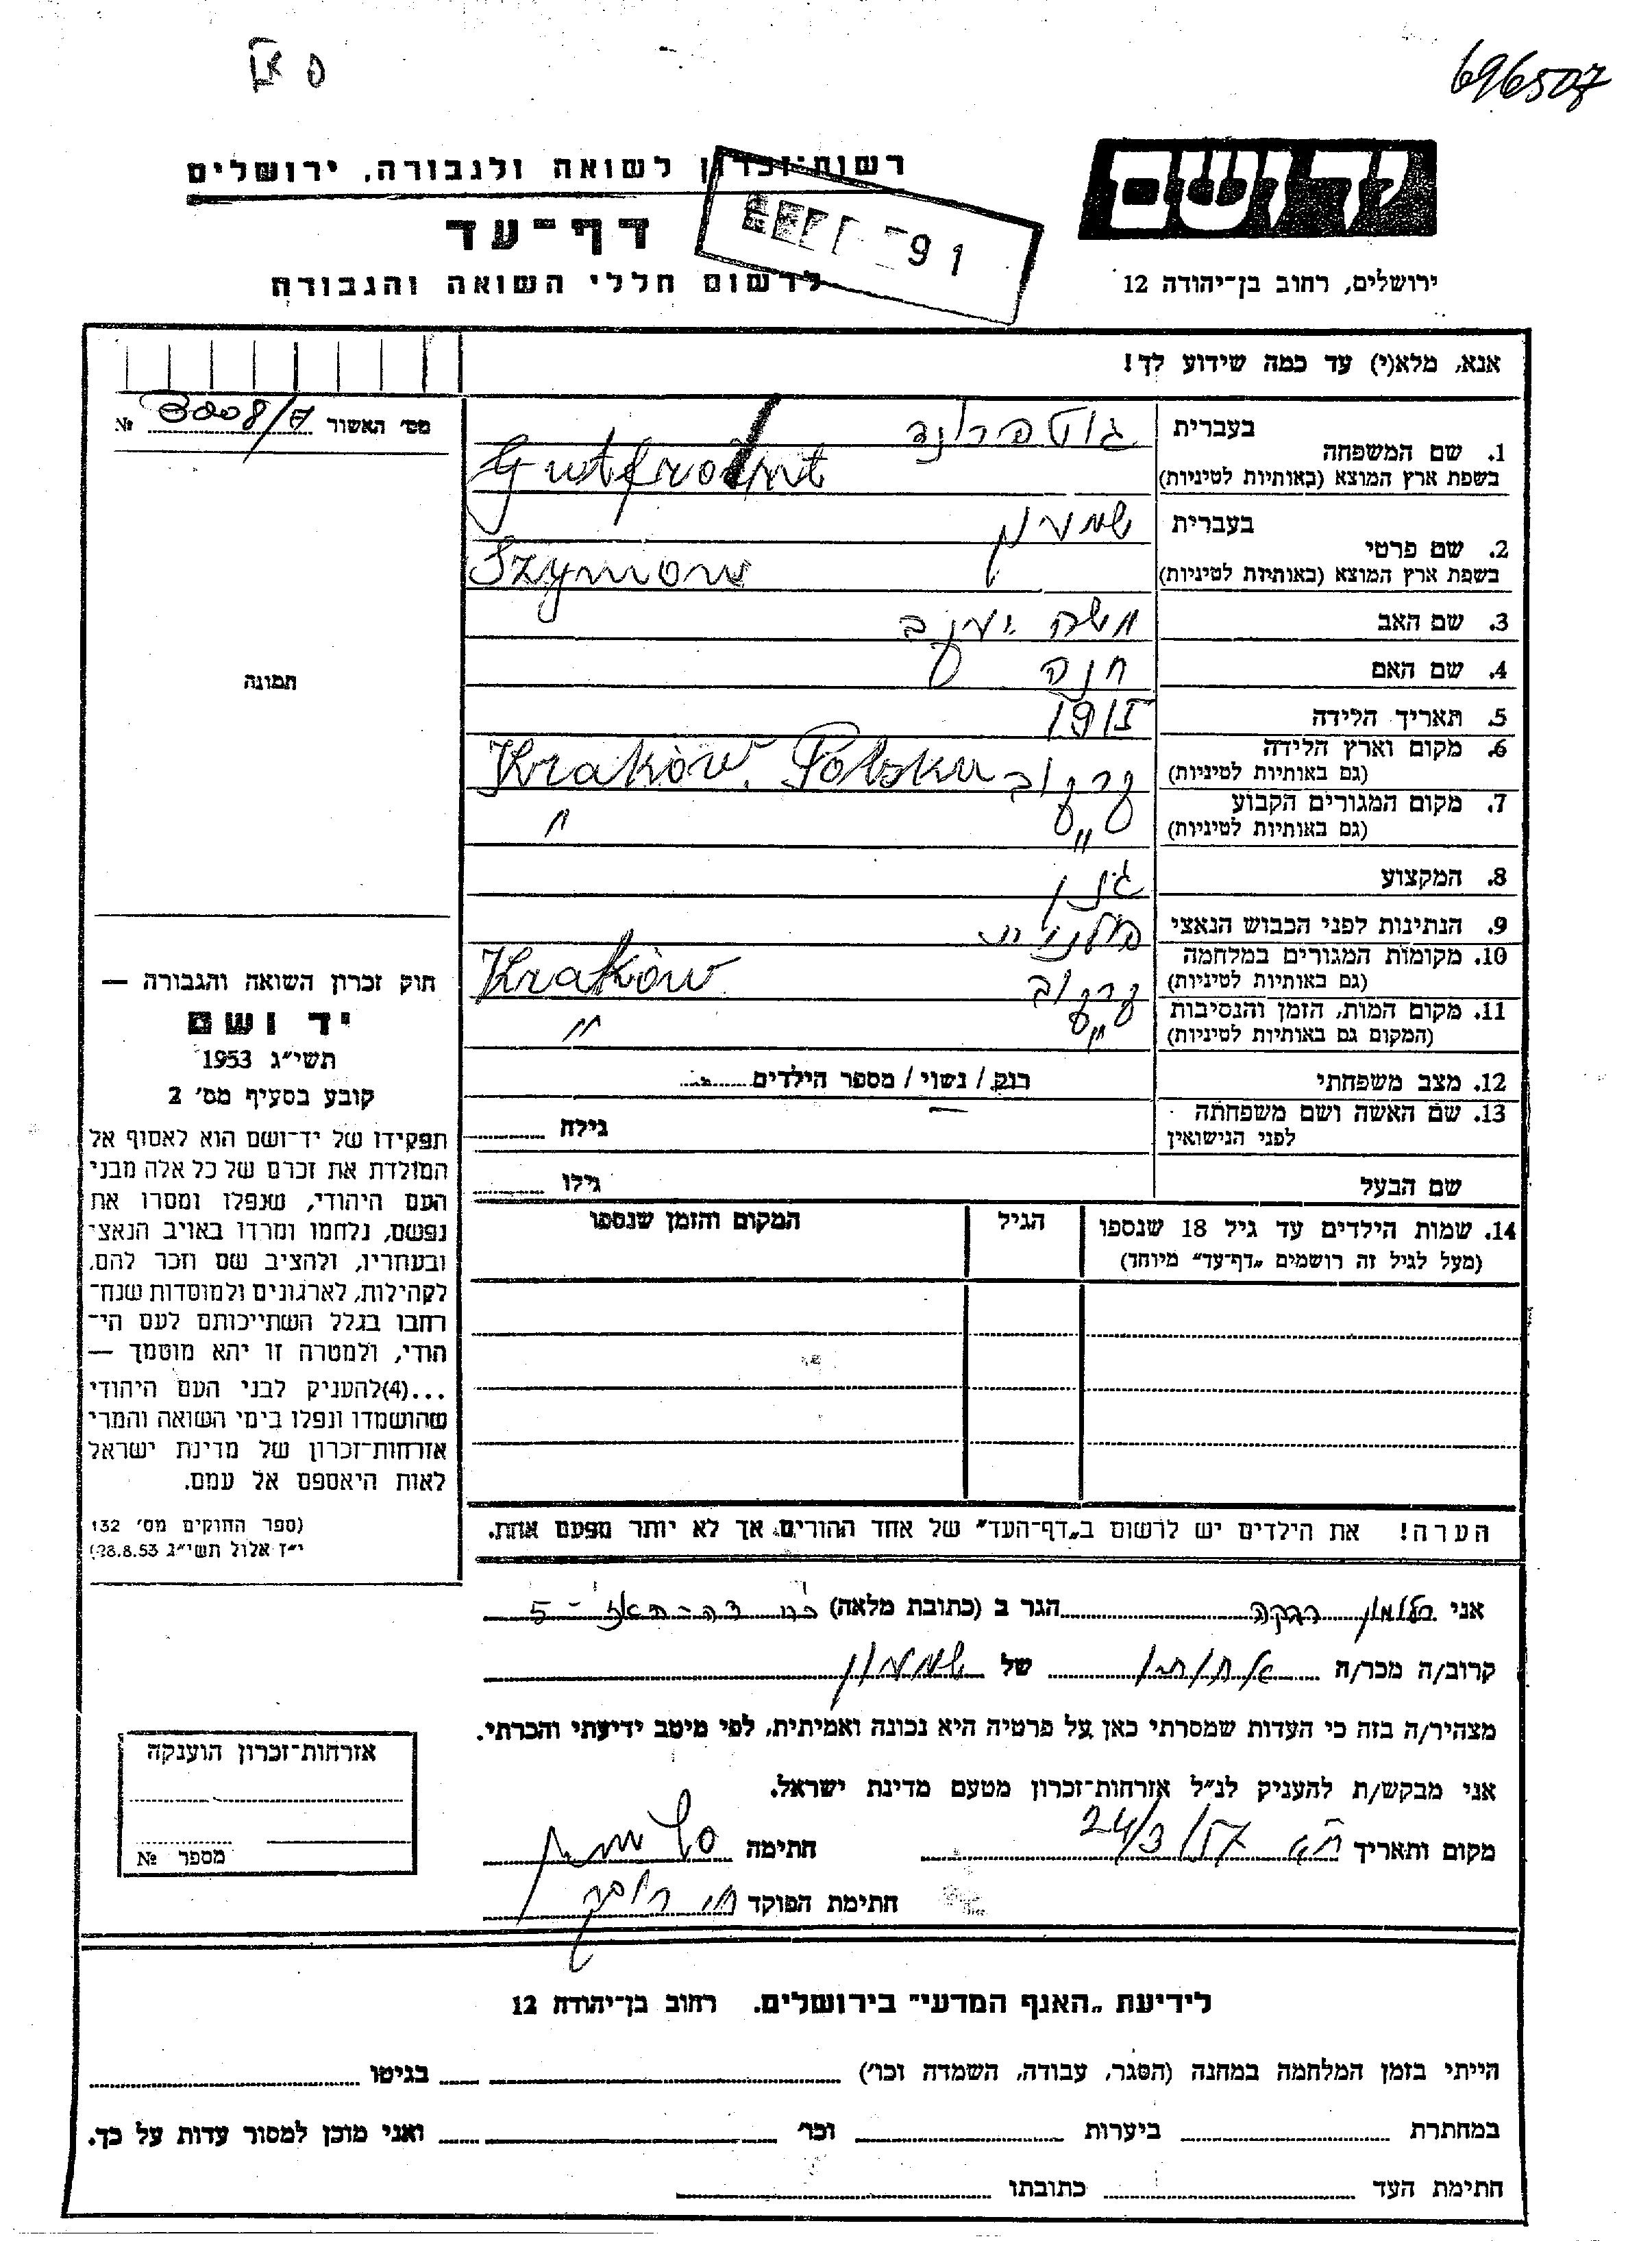 696507
יד ושם
רשות־זכרון לשואה ולגבורה, ירושלים
דף־עד
לרשום חללי השואה והגבורה
91
ירושלים, רחוב בן־יהודה 12
אנא, מלא(י) עד כמה שידוע לך!
מס׳ האשור 3008/7 №
1. שם המשפחה
בעברית גוטפרוינד
בשפת ארץ המוצא (באותיות לטיניות) Gutfroint
2. שם פרטי
בעברית שמעון
בשפת ארץ המוצא (באותיות לטיניות) Szymon
3. שם האב משה יעקב
4. שם האם חנה
5. תאריך הלידה 1915
6. מקום וארץ הלידה קרקוב Kraków Polska
(גם באותיות לטיניות)
7. מקום המגורים הקבוע " "
(גם באותיות לטיניות)
8. המקצוע
9. הנתינות לפני הכבוש הנאצי פולנית
10. מקומות המגורים במלחמה קרקוב Kraków
(גם באותיות לטיניות)
11. מקום המות, הזמן והנסיבות " "
(המקום גם באותיות לטיניות)
12. מצב משפחתי רוק / נשוי / מספר הילדים
13. שם האשה ושם משפחתה
לפני הנישואין
גילה
שם הבעל גילו
14. שמות הילדים עד גיל 18 שנספו
(מעל לגיל זה רושמים „דף־עד״ מיוחד)
הגיל
המקום והזמן שנספו
תמונה
חוק זכרון השואה והגבורה —
יד ושם
תשי״ג 1953
קובע בסעיף מס׳ 2
תפקידו של יד־ושם הוא לאסוף אל
המולדת את זכרם של כל אלה מבני
העם היהודי, שנפלו ומסרו את
נפשם, נלחמו ומרדו באויב הנאצי
ובעוזריו, ולהציב שם וזכר להם,
לקהילות, לארגונים ולמוסדות שנח־
רחבו בגלל השתייכותם לעם הי־
הודי, ולמטרה זו יהא מוסמך —
...(4)להעניק לבני העם היהודי
שהושמדו ונפלו בימי השואה והמרי
אזרחות־זכרון של מדינת ישראל
לאות היאספם אל עמם.
(ספר החוקים מס׳ 132
י״ז אלול תשי״ג 28.8.53)
הערה! את הילדים יש לרשום ב„דף־העד״ של אחד ההורים אך לא יותר מפעם אחת.
אני רבקה הגר ב (כתובת מלאה) 5
קרוב/ה מכר/ה אחותו של שמעון
מצהיר/ה בזה כי העדות שמסרתי כאן על פרטיה היא נכונה ואמיתית, לפי מיטב ידיעתי והכרתי.
אני מבקש/ת להעניק לנ״ל אזרחות־זכרון מטעם מדינת ישראל.
מקום ותאריך ת״א 24/3/57 חתימה
חתימת הפוקד
אזרחות־זכרון הוענקה
מספר №
לידיעת „האגף המדעי״ בירושלים. רחוב בן־יהודה 12
הייתי בזמן המלחמה במחנה (הסגר, עבודה, השמדה וכו׳) בגיטו
במחתרת ביערות וכו׳ ואני מוכן למסור עדות על כך.
חתימת העד כתובתו